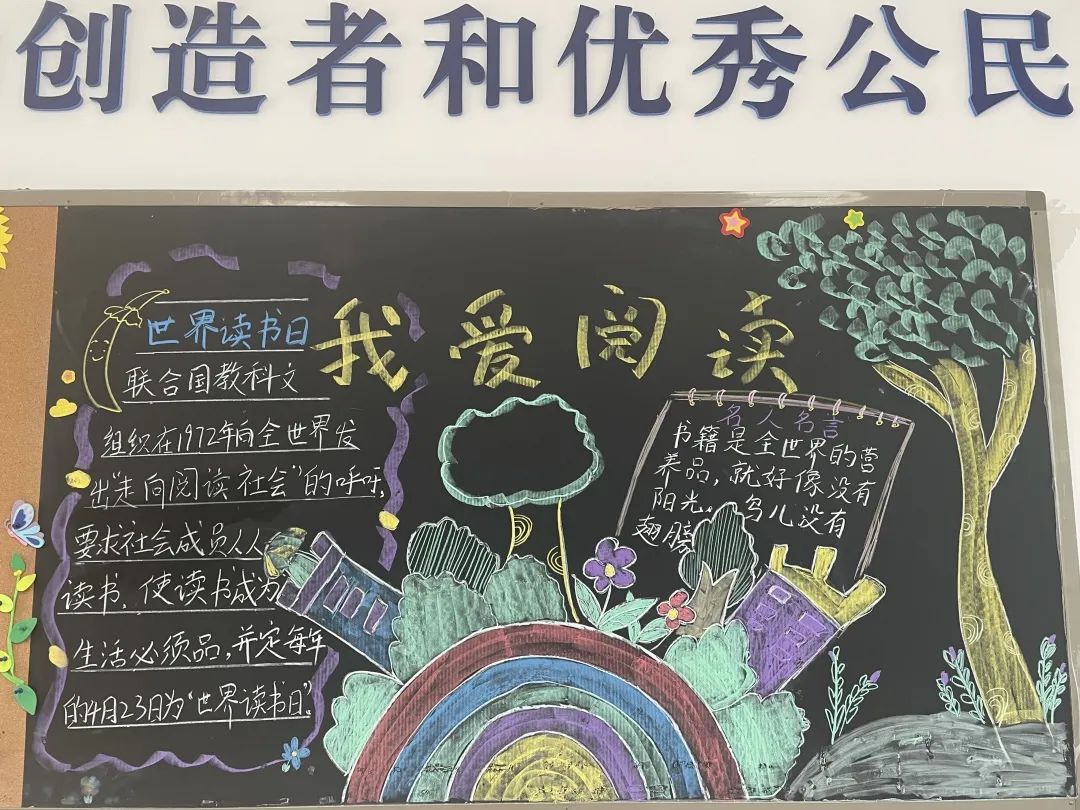 创造者和优秀公民
我爱阅读
世界读书日
联合国教科文
组织在1972年向全世界发
出“走向阅读社会”的呼吁,
要求社会成员人人
读书,使读书成为
生活必须品,并定每年
的4月23日为“世界读书日”。
名人名言
书籍是全世界的营
养品,就好像没有
阳光。鸟儿没有
翅膀